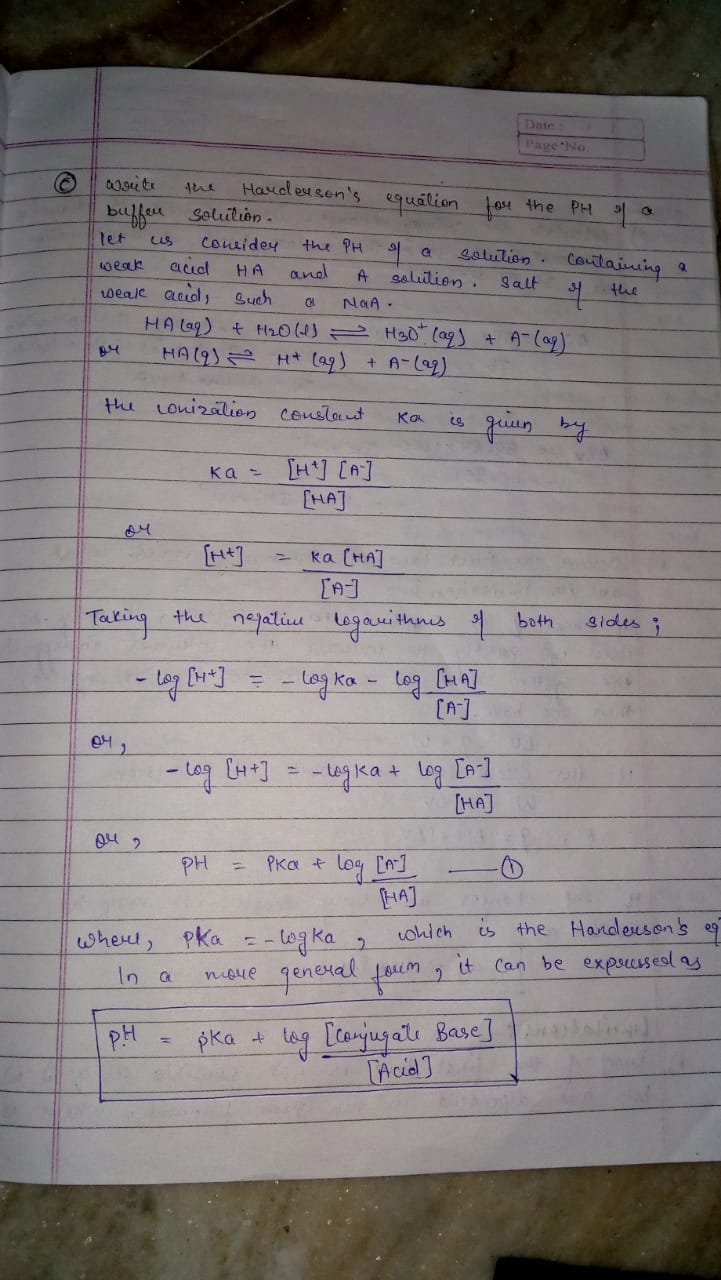 Date :
Page No.
(c) Write the Handerson's equation for the PH of a
buffer solution.
let us consider the PH of a solution. Containing a
weak acid HA and A solution. Salt of the
weak acid, such a NaA.
HA(aq) + H2O(l) ⇌ H3O+ (aq) + A-(aq)
or HA(q) ⇌ H+ (aq) + A-(aq)
the ionization constant Ka is given by
Ka = [H+] [A-]
[HA]
or
[H+] = Ka [HA]
[A-]
Taking the negative logarithms of both sides ;
- log [H+] = - log Ka - log [HA]
[A-]
or,
- log [H+] = - log Ka + log [A-]
[HA]
or,
pH = PKa + log [A-] —— ①
[HA]
where, pKa = - log Ka , which is the Handerson's eq
In a more general form, it can be expressed as
pH = pKa + log [Conjugate Base]
[Acid]